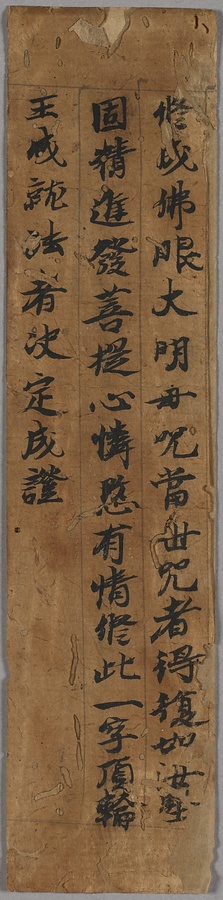 修成佛眼大明母呪當世呪者得復如汝堅
固精進發菩提心憐愍有情修此一字頂輪
王成就法者决定成證